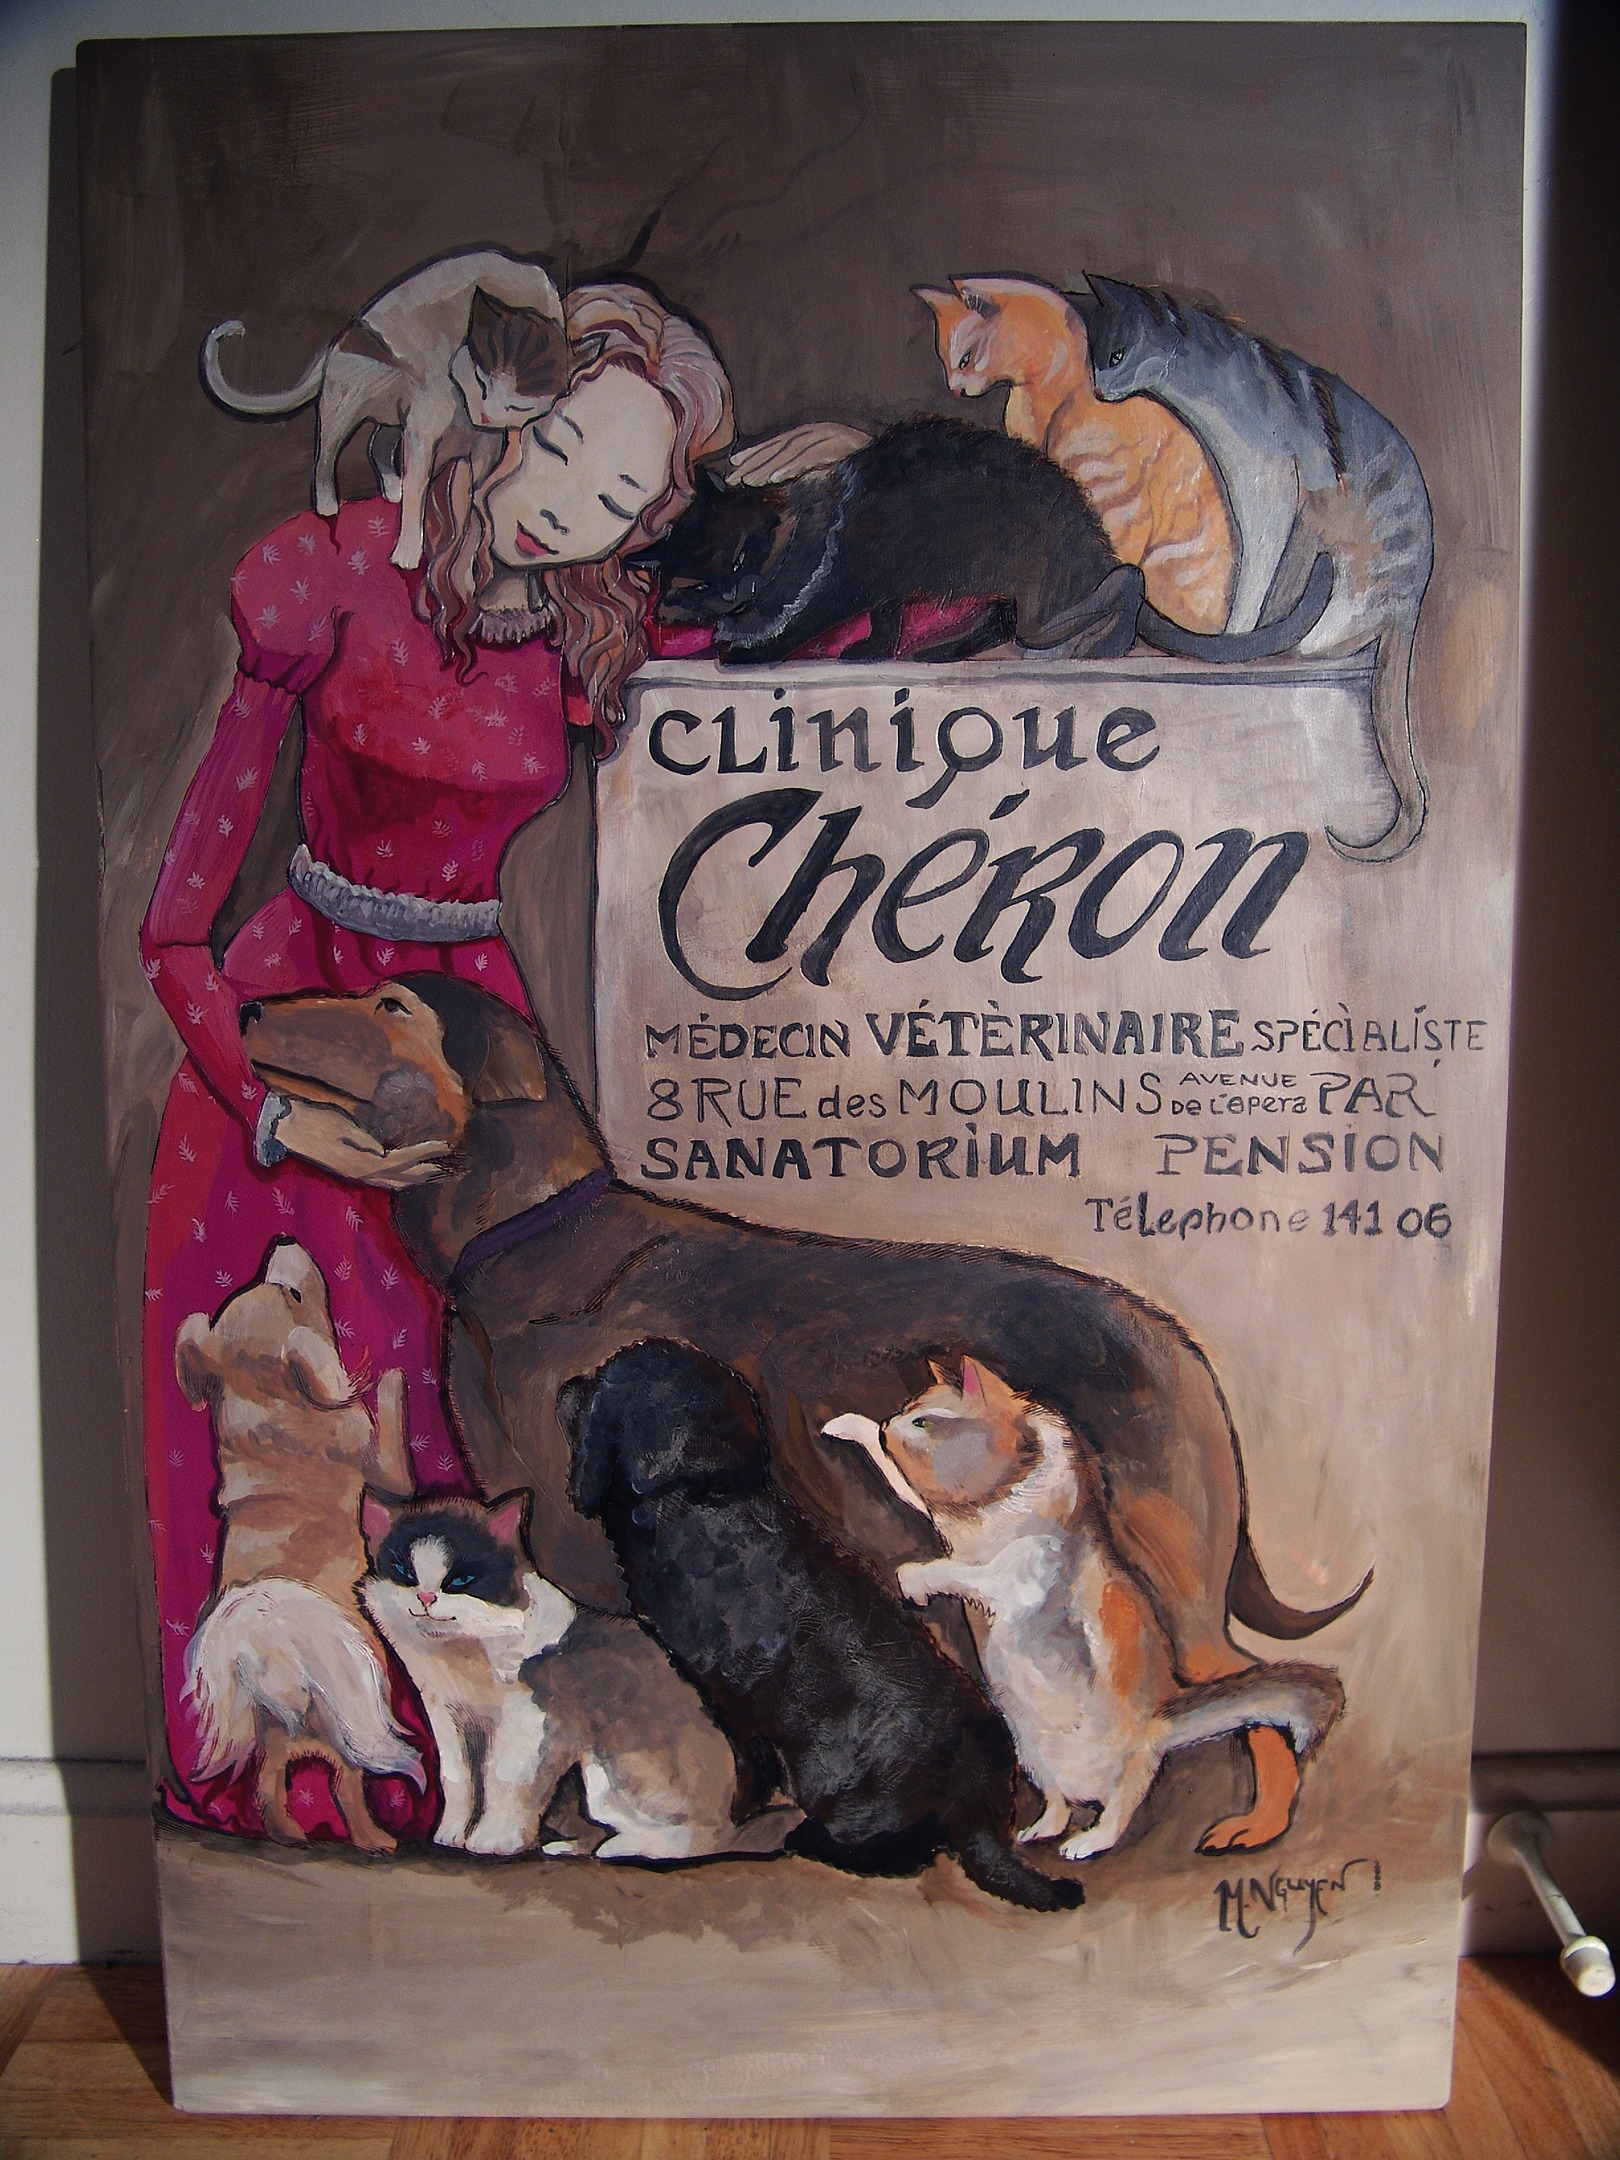 CLiniQue
Chéron
MÉDECIN VÉTÈRINAIRE SPÉCÌALÍSTE
8 RUE des MOULINS AVENUE De L'opera PAR
SANATORIUM PENSION
TéLephone 141 06
M. NGUYEN